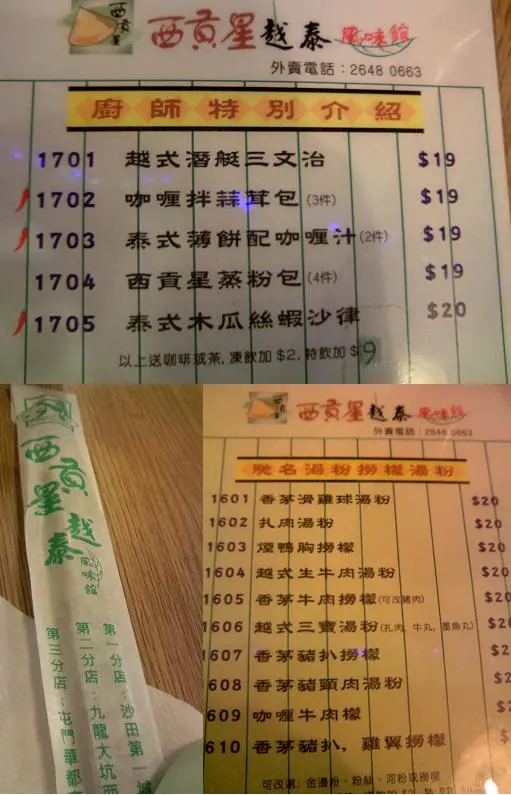 西貢星越泰風味館
外賣電話：2648 0663
廚師特別介紹
1701 越式潛艇三文治 $19
1702 咖喱拌蒜茸包(3件) $19
1703 泰式薄餅配咖喱汁(2件) $19
1704 西貢星蒸粉包(4件) $19
1705 泰式木瓜絲蝦沙律 $20
以上送咖啡或茶, 凍飲加 $2, 特飲加 $9
西貢星越泰風味館
第一分店：沙田第一城
第二分店：九龍大坑西
第三分店：屯門華都
西貢星越泰風味館
外賣電話：2648 0663
馳名湯粉撈檬湯粉
1601 香茅滑雞球湯粉 $20
1602 扎肉湯粉 $20
1603 煙鴨胸撈檬 $20
1604 越式生牛肉湯粉 $20
1605 香茅牛肉撈檬(可改豬肉) $20
1606 越式三寶湯粉(扎肉, 牛丸, 墨魚丸) $20
1607 香茅豬扒撈檬 $2
608 香茅豬頸肉湯粉 $2
609 咖喱牛肉檬 $
610 香茅豬扒, 雞翼撈檬 $
可改選：金邊粉、粉絲、河粉或撈檬